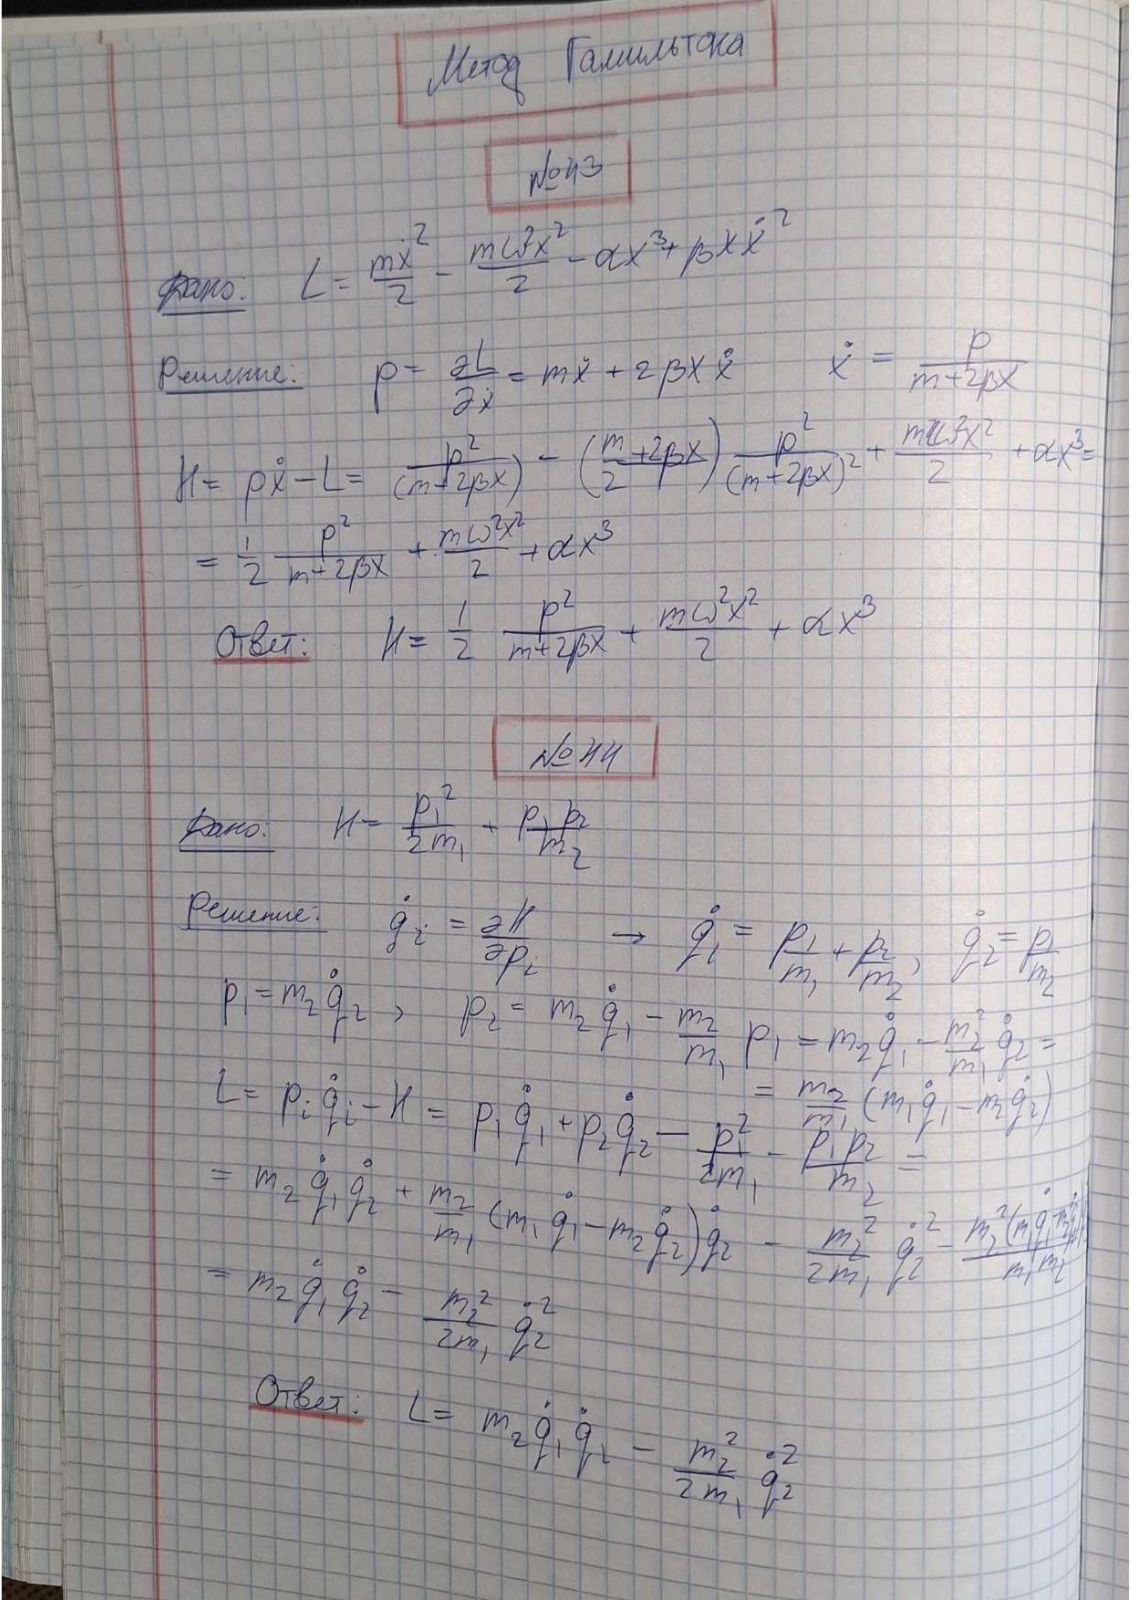 Метод Гамильтона
№43
Дано: L = mẋ²/2 - mω²x²/2 - αx³ + βxẋ²
Решение: p = ∂L/∂ẋ = mẋ + 2βxẋ ẋ = p/(m+2βx)
H = pẋ - L = p²/(m+2βx) - (m+2βx)/2 p²/(m+2βx)² + mω²x²/2 + αx³ =
= 1/2 p²/(m+2βx) + mω²x²/2 + αx³
Ответ: H = 1/2 p²/(m+2βx) + mω²x²/2 + αx³
№44
Дано: H = p₁²/2m₁ + p₁p₂/m₂
Решение: q̇ᵢ = ∂H/∂pᵢ → q̇₁ = p₁/m₁ + p₂/m₂, q̇₂ = p₁/m₂
p₁ = m₂q̇₂, p₂ = m₂q̇₁ - m₂/m₁ p₁ = m₂q̇₁ - m₂²/m₁ q̇₂ =
= m₂/m₁ (m₁q̇₁ - m₂q̇₂)
L = pᵢq̇ᵢ - H = p₁q̇₁ + p₂q̇₂ - p₁²/2m₁ - p₁p₂/m₂ =
= m₂q̇₁q̇₂ + m₂/m₁ (m₁q̇₁ - m₂q̇₂)q̇₂ - m₂²/2m₁ q̇₂² -
= m₂q̇₁q̇₂ - m₂²/2m₁ q̇₂²
Ответ: L = m₂q̇₁q̇₂ - m₂²/2m₁ q̇₂²